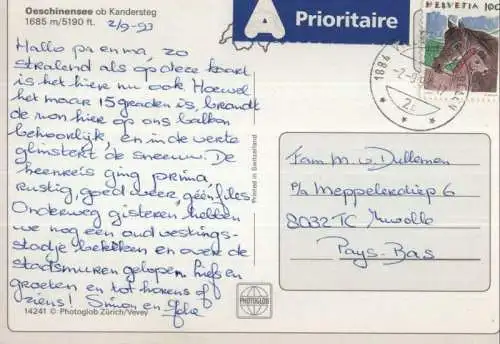 Oeschinensee ob Kandersteg
1685 m/5190 ft.
2/9-93
Hallo pa en ma, zo
stralend als op deze kaart
is het hier nu ook. Hoewel
het maar 15 graden is, brandt
de zon hier op ons balkon
behoorlijk, en in de verte
glinstert de sneeuw. De
heenreis ging prima
Rustig, goed weer, géén files
Onderweg gisteren hebben
we nog een oud vestings-
stadje bekeken en over de
stadsmuren gelopen. liefs en
groeten en tot horens of
ziens! Simon en
14241 © Photoglob Zürich/Vevey
Printed in Switzerland
PHOTOGLOB
A Prioritaire
HELVETIA 100
1884
Fam M. v. Dullemen
P/a Meppelerdiep 6
8032 TC Zwolle
Pays-Bas